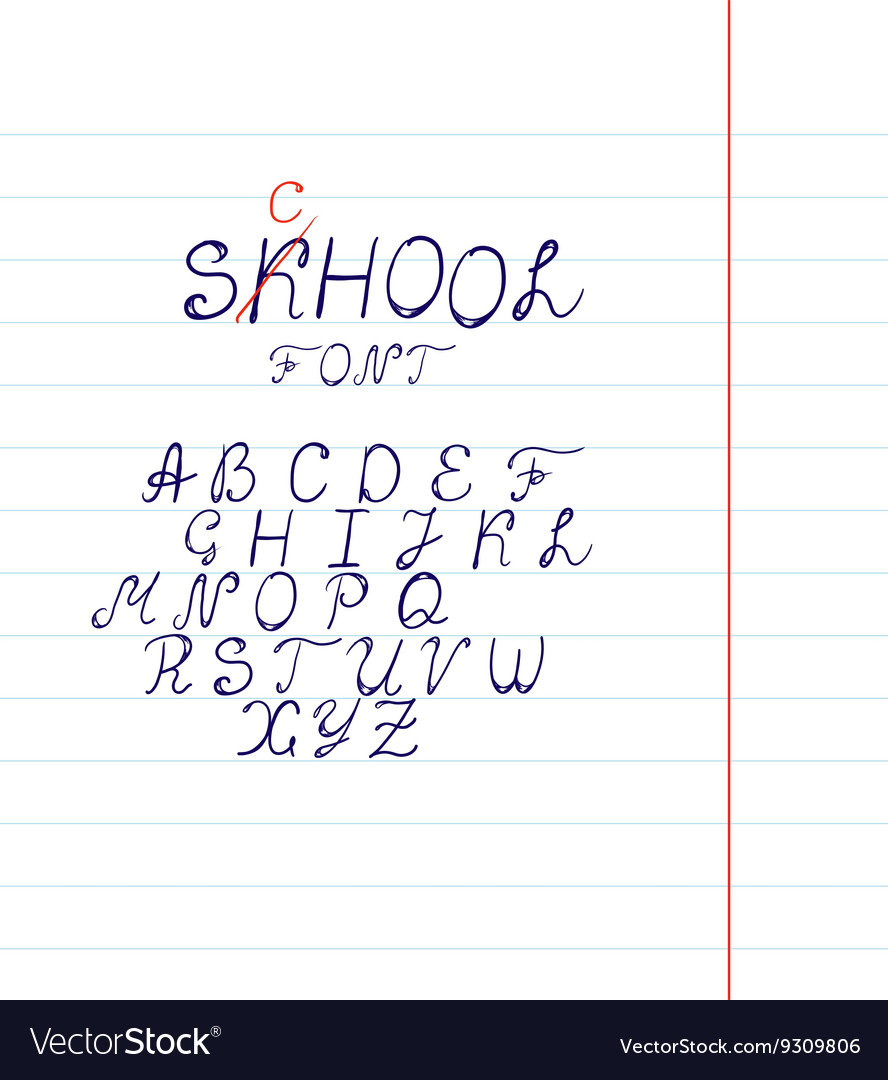 C
SKHOOL
FONT
A B C D E F
G H I J K L
M N O P Q
R S T U V W
X Y Z
VectorStock®
VectorStock.com/9309806